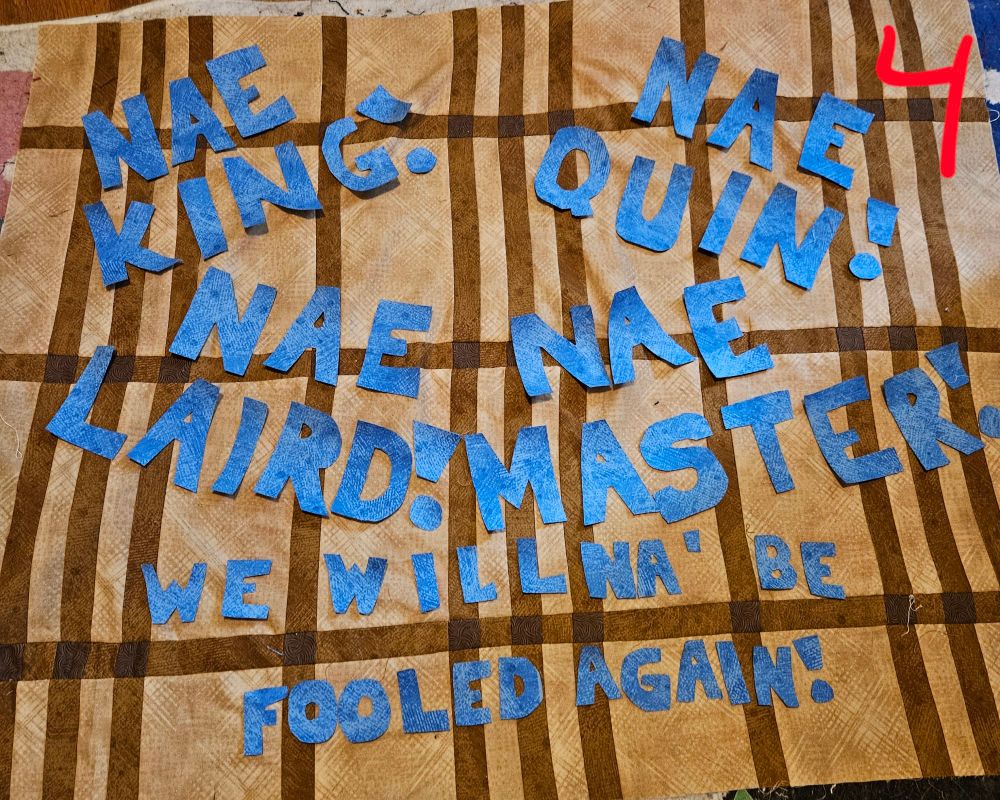 4
NAE KING!
NAE QUIN!
NAE LAIRD!
NAE MASTER!
WE WILLNA' BE
FOOLED AGAIN!